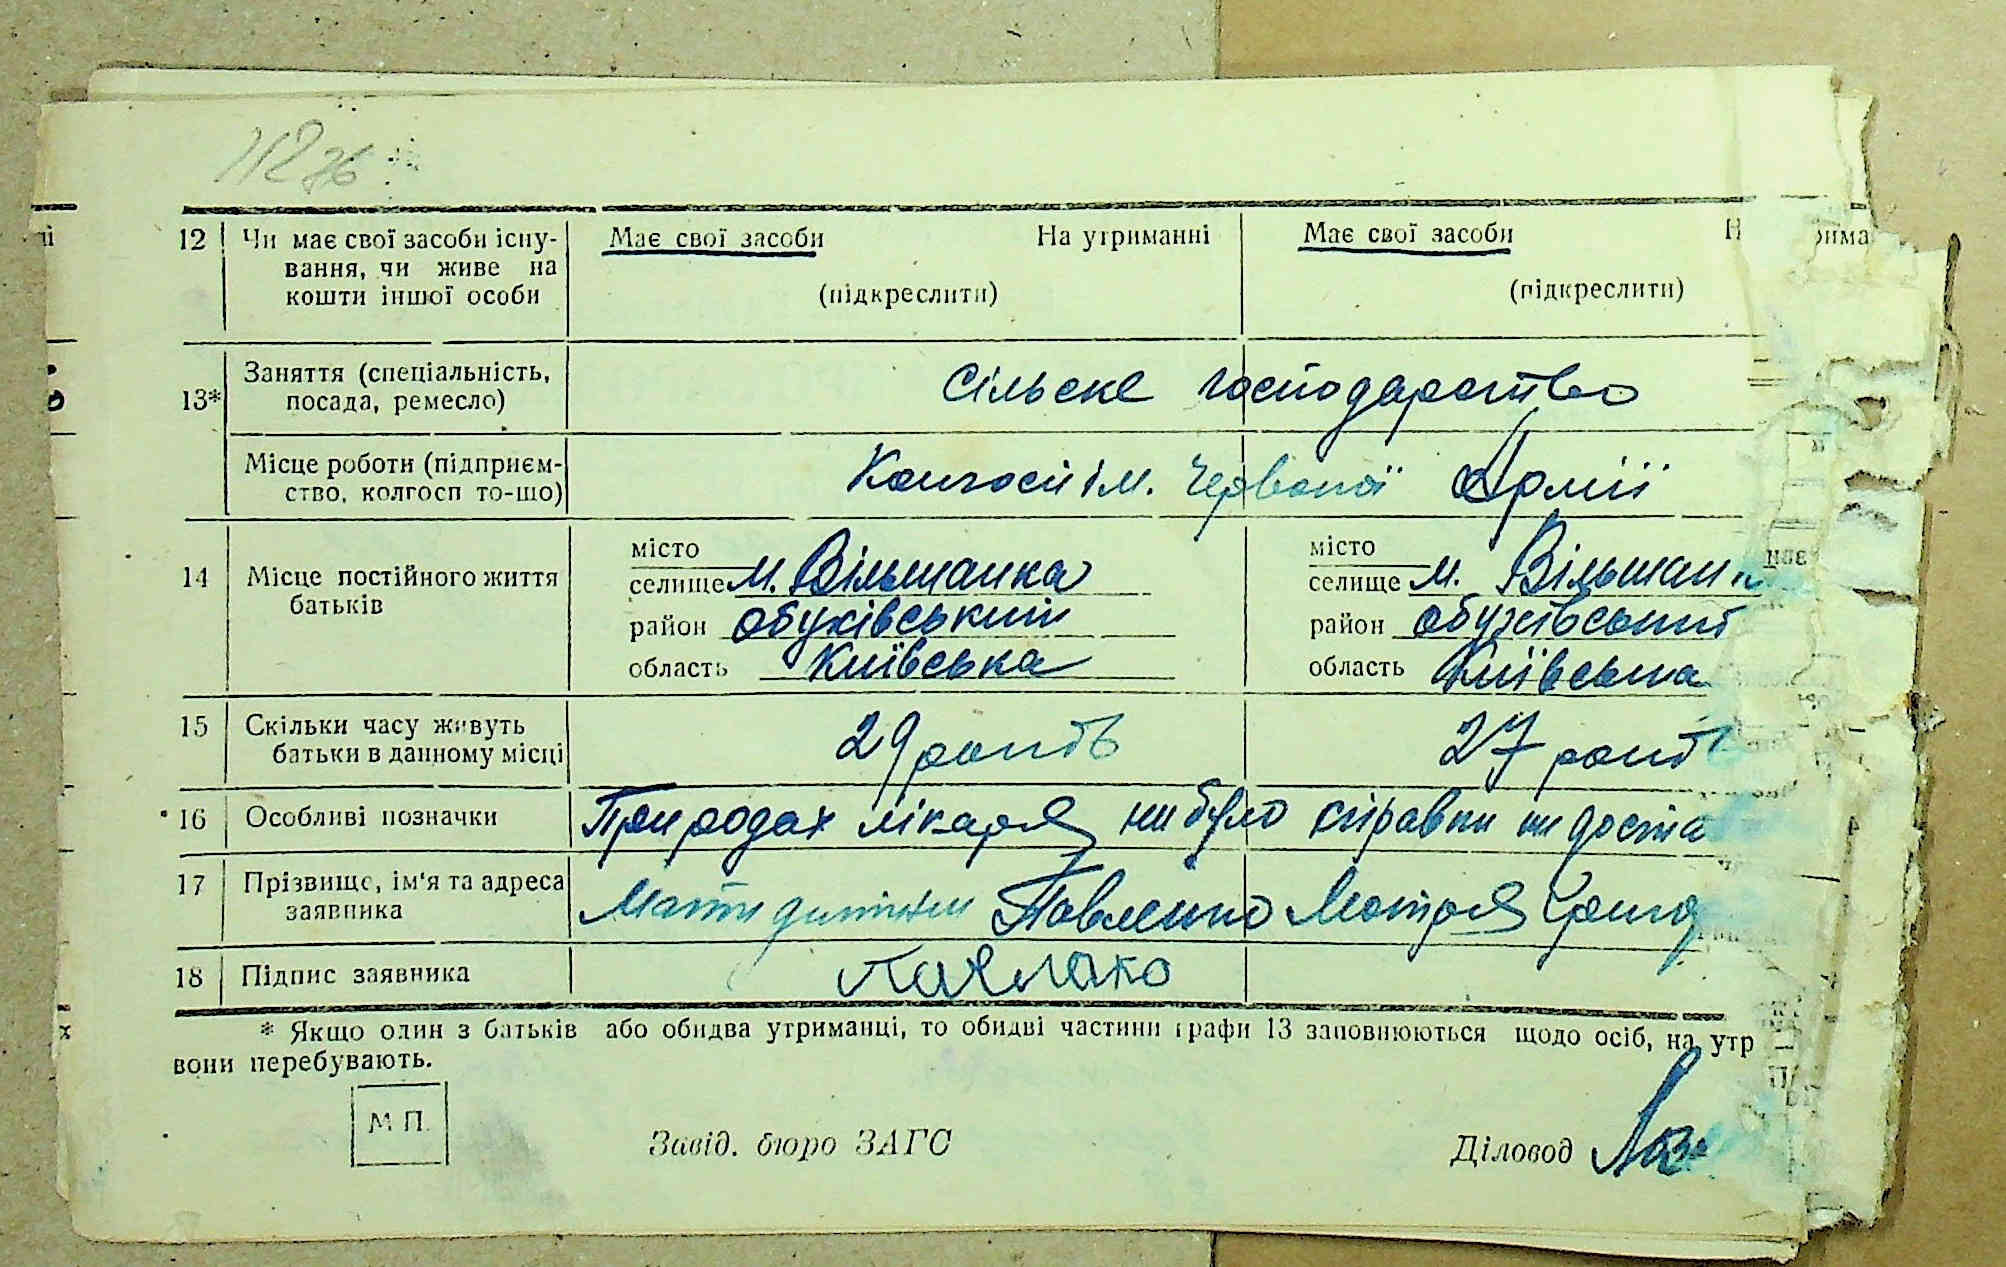 12 Чи має свої засоби існу-
вання, чи живе на
кошти іншої особи
Має свої засоби На утриманні
(підкреслити)
Має свої засоби
(підкреслити)
13* Заняття (спеціальність,
посада, ремесло)
Сільске господарство
Місце роботи (підприєм-
ство, колгосп то-що)
Колгосп ім. Червоної Армії
14 Місце постійного життя
батьків
місто
селище м. Вільшанка
район Обухівський
область Київська
місто
селище м. Вільшанк
район Обухівський
область Київська
15 Скільки часу живуть
батьки в данному місці
29 років
27 років
16 Особливі позначки
При родах лікаря ни було справки ни доста
17 Прізвище, ім'я та адреса
заявника
Мати дитини Павленко Мотря Григор
18 Підпис заявника
* Якщо один з батьків або обидва утриманці, то обидві частини графи 13 заповнюються щодо осіб, на утр
вони перебувають.
М П.
Завід. бюро ЗАГС
Діловод